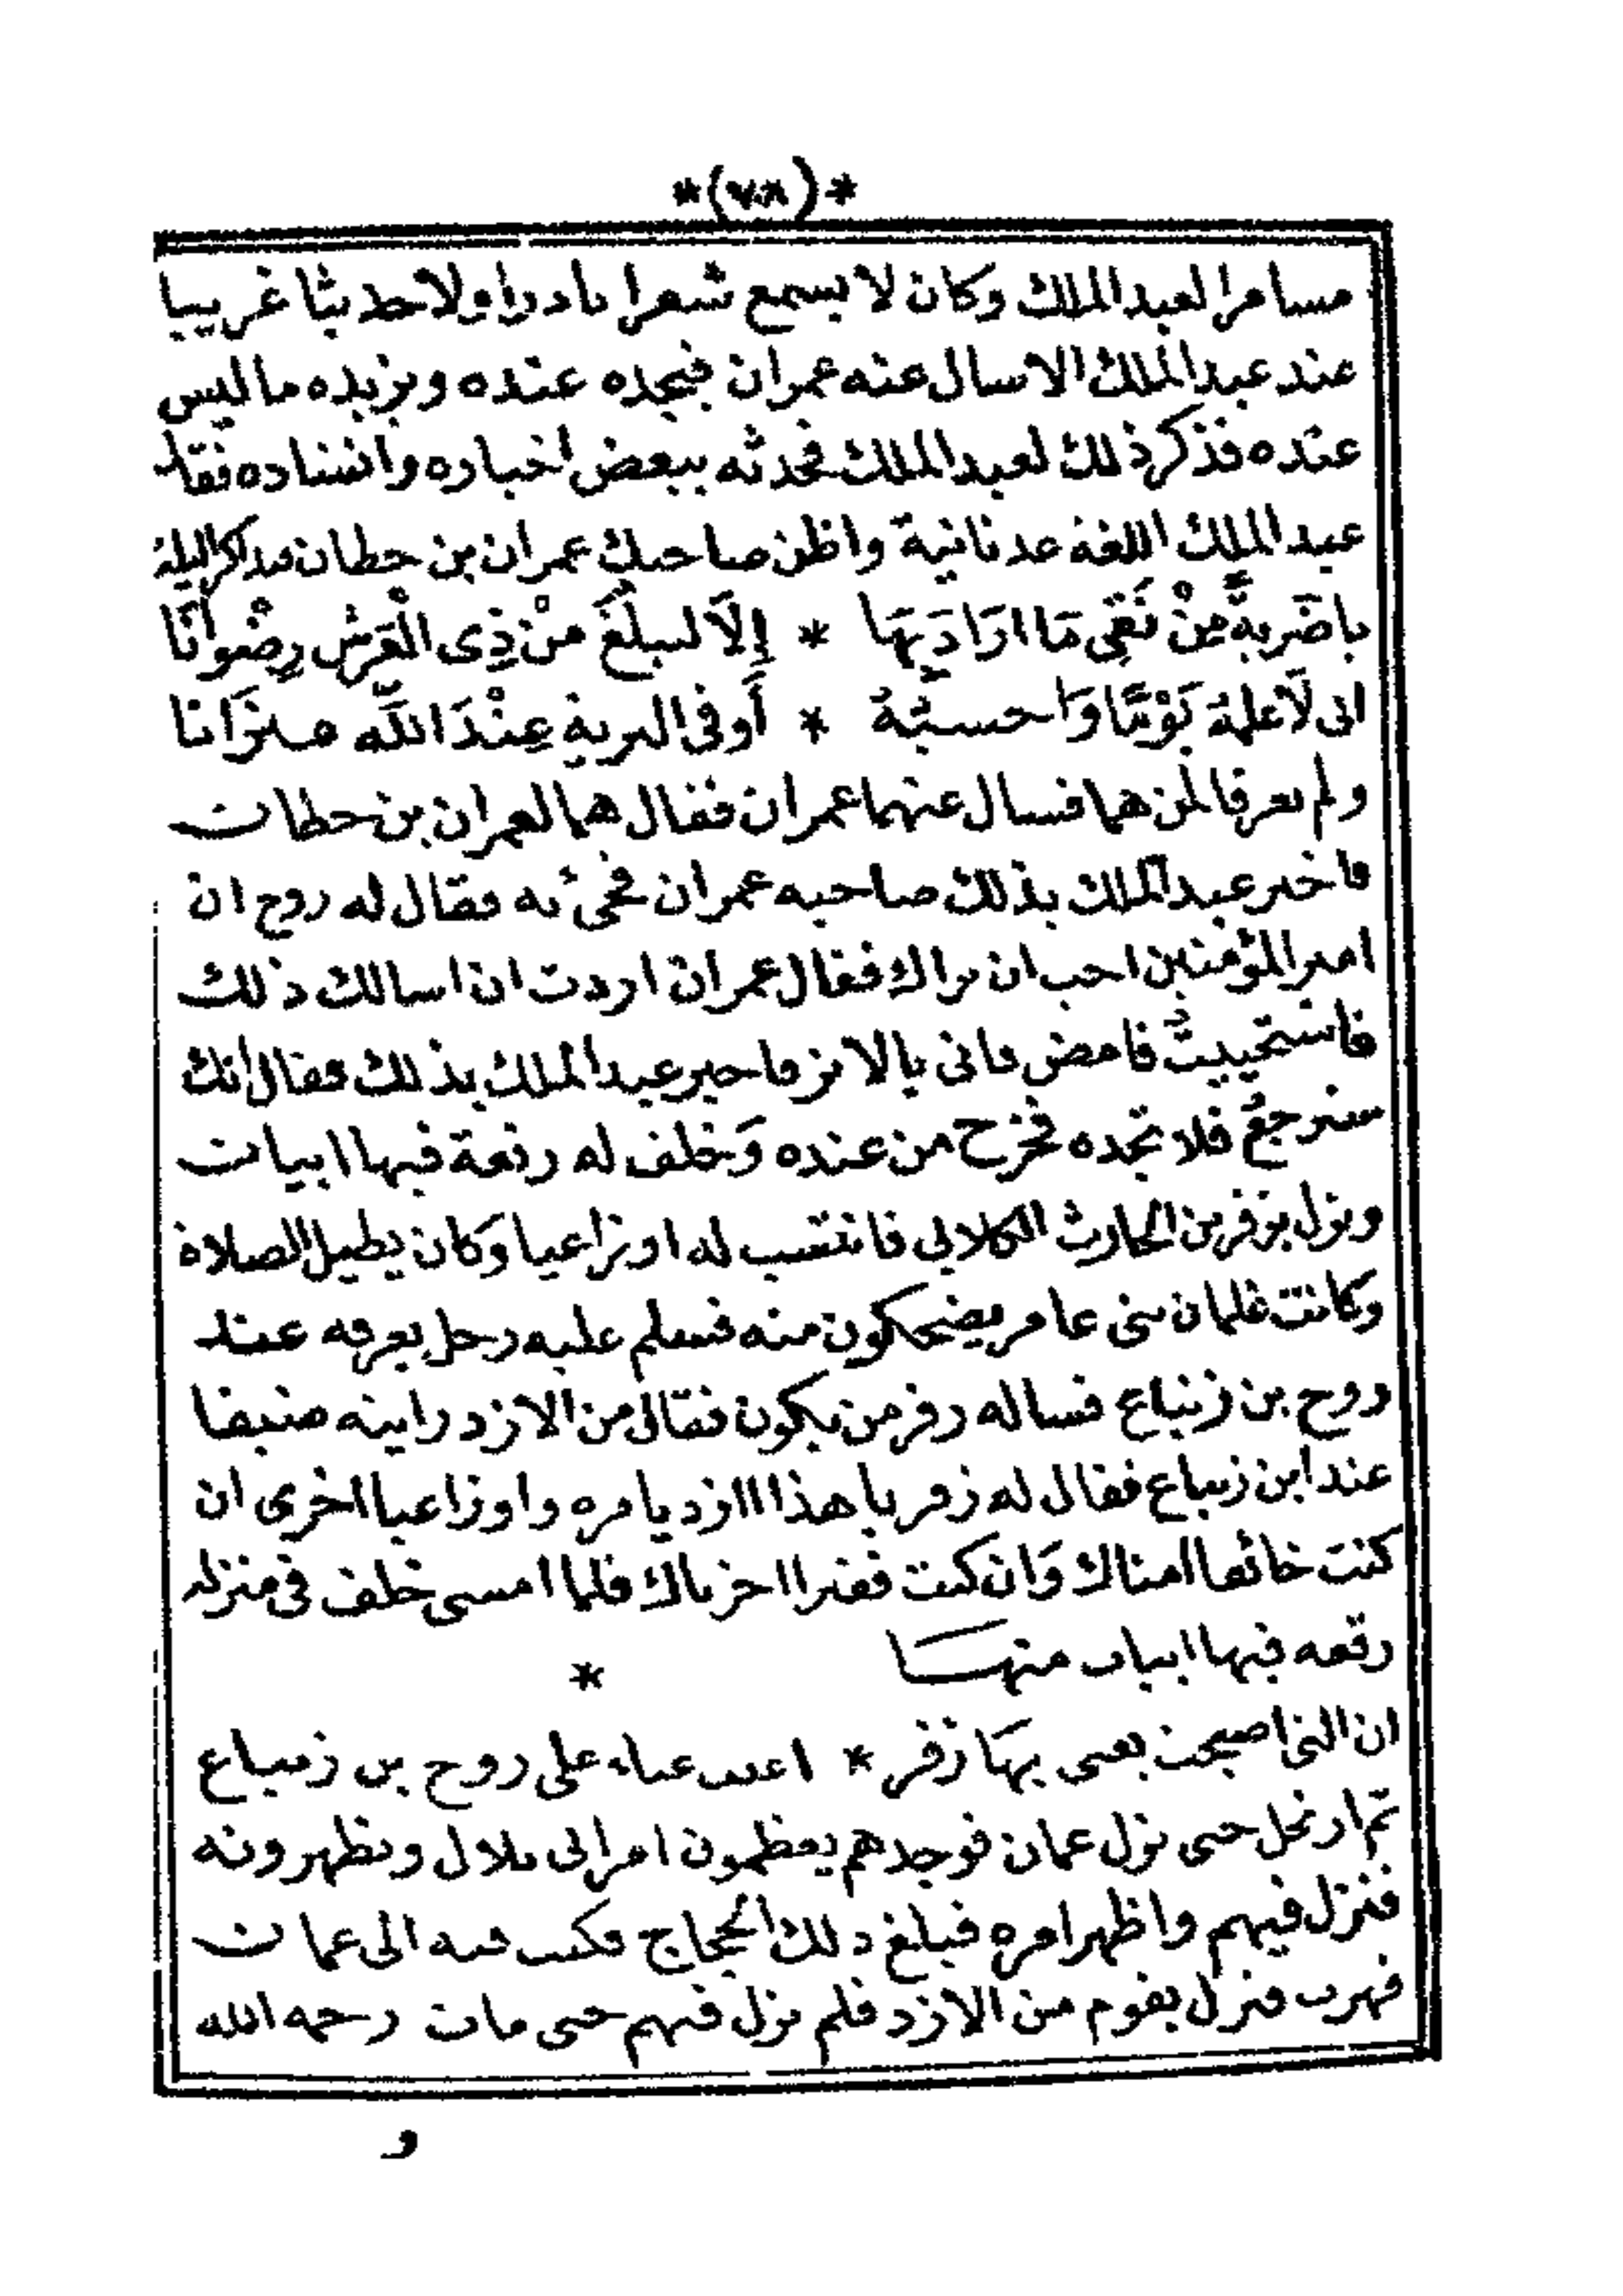 *(٧٨)*
مسامرا لعبد الملك وكان لا يسمع شعرا نادرا ولا حديثا غريبا
عند عبد الملك الا سال عنه عمران فيجده عنده ويزيده ما ليس
عنده فذكر ذلك لعبد الملك فحدثه ببعض اخباره وانشاده فقال
عبد الملك اللغة عدنانية واظن صاحبك عمران بن حطان فتذاكر ليلة
يا ضَربةً مِنْ تَقِىٍ مَا ارَادَ بِهَا * إلاَّ ليبلُغَ مِنْ ذِى الْعَرْشِ رِضْوانَا
انى لَاعلمهُ يَوْمًا وَاحسبُهُ * أَوفى البرية عِنْدَ اللَّه ميزَانا
ولم يعرفا لمن هما فسال عنهما عمران فقال هما لعمران بن حطان
فاخبر عبد الملك بذلك صاحبه عمران فجئ به فقال له روح ان
امير المؤمنين احب ان يراك فقال عمران اردت ان اسالك ذلك
فاستحييتُ فامض فانى بالاثر فاخبر عبد الملك بذلك فقال انك
سترجعُ فلا تجده فخرج من عنده وَخلف له رقعة فيها ابيات
ونزل بزفر بن الحارث الكلابى فانتسب له اوزاعيا وَكان يطيل الصلاة
وكانت غلمان بنى عامر يضحكون منه فسلم عليه رجل يعرفه عند
روح بن زنباع فساله زفر من يكون فقال من الازد رايته ضيفا
عند ابن زنباع فقال له زفر يا هذا ازديا مره واوزاعيا اخرى ان
كنت خائفا امناك وَان كنت فقيرا اجزناك فلما امسى خلف فى منزله
رقعه فيها ابيات منهـــا *
ان التى اصبحت يعيى بهَا زفر * اعيت عياء على روح بن زنباع
ثم ارتحل حتى نزل عمان فوجدهم يعظمون امر ابى بلال ويظهرونه
فنزل فيهم واظهر امره فبلغ ذلك الحجاج فكتب فيه الى عمان
فهرب فنزل بقوم من الازد فلم يزل فيهم حتى مات رحمه الله
و